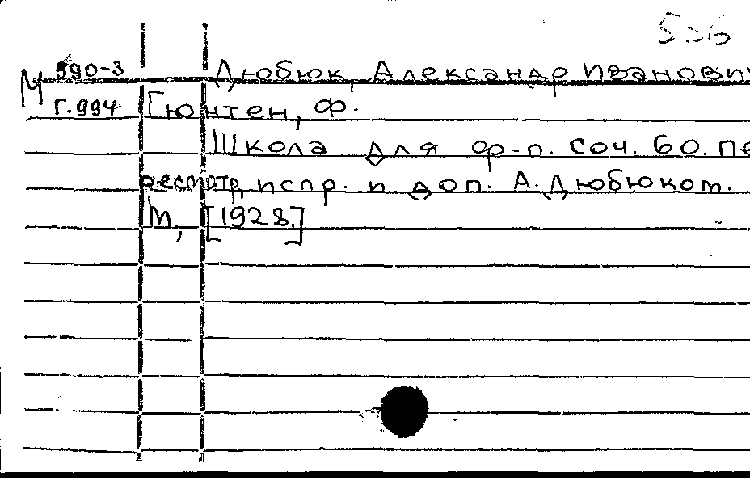 536
М 590-3 Дюбюк, Александр Иванович
Г.994 Гюнтен, Ф.
Школа для ф-п. соч. 60. Пе
ресмотр, испр. и доп. А. Дюбюком.
М, [1928.]